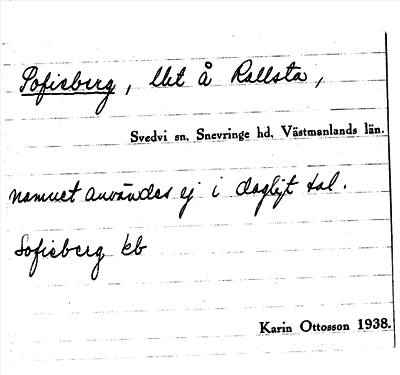 Sofieberg, lht å Rallsta,
Svedvi sn. Snevringe hd. Västmanlands län.
namnet användes ej i dagligt tal.
Sofieberg kb
Karin Ottosson 1938.